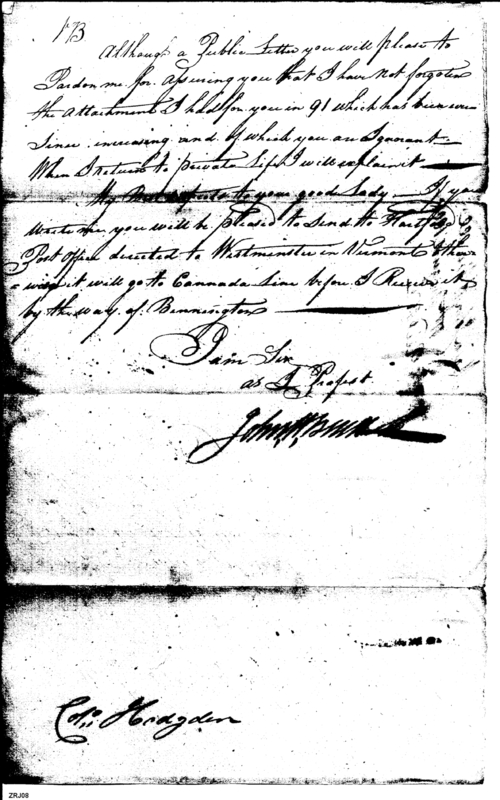 NB
Although a Public Letter you will please to
Pardon me for assuring you that I have not forgoten
the attachment I had for you in 91 which has been ever
Since increasing and of which you are Ignorant
When I return to private life I will explain it
My Best respects to your good Lady If you
write me you will be pleased to Send to Hartford
Post office directed to Westminster in Vermont other
= wise it will go to Cannada line before I Receive it
by the way of Bennington
I am Sir
as I Profest
John
Colo Hodgden
ZRJ08